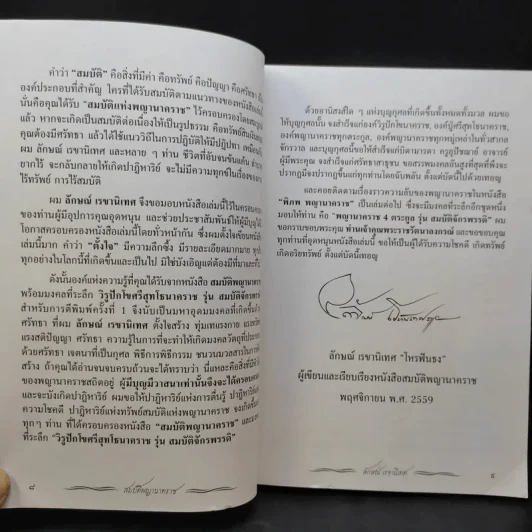 คำว่า "สมบัติ" คือสิ่งที่มีค่า คือทรัพย์ คือปัญญา คือศรัทธา
องค์ประกอบที่สำคัญ ใครที่ได้รับสมบัติตามแนวทางของหนังสือเล่มนี้
นั่นคือคุณได้รับ "สมบัติแห่งพญานาคราช" ไว้ครอบครองโดยสมบูรณ์
แล้ว หากจะเกิดเป็นสมบัติต่อเนื่องให้เป็นรูปธรรม คือทรัพย์สินเงินทอง
คุณต้องมีศรัทธา แล้วได้ใช้แนววิถีในการปฏิบัติให้มีปฏิปทา
ผม ลักษณ์ เรขานิเทศ และหลาย ๆ ท่าน ชีวิตที่อับจนข้นแค้น
ยากไร้ จะกลับกลายให้เกิดปาฏิหาริย์ จะไม่มีความทุกข์ในเรื่องของ
ไร้ทรัพย์ การไร้สมบัติ
ผม ลักษณ์ เรขานิเทศ จึงขอมอบหนังสือเล่มนี้ไว้ในครอบครอง
ของท่านผู้มีอุปการคุณอุดหนุน และช่วยประชาสัมพันธ์ให้ผู้มีบุญได้
โอกาสครอบครองหนังสือเล่มนี้โดยทั่วหน้ากัน ซึ่งผมตั้งใจเขียนหนังสือ
เล่มนี้มาก คำว่า "ตั้งใจ" มีความลึกซึ้ง มีรายละเอียดมากมาย
อย่างในโลกนี้ที่เกิดขึ้นและเป็นไป มิใช่บังเอิญแต่ต้องมีที่มาและ
ดังนั้นองค์แห่งความรู้ที่คุณได้รับจากหนังสือ สมบัติพญานาคราช
พร้อมมงคลที่ระลึก วิรูปักโขศรีสุทโธนาคราช รุ่น สมบัติจักรพรรดิ
สำหรับการตีพิมพ์ครั้งที่ 1 จึงนับเป็นมหาอุดมมงคลที่เกิดขึ้น
ศรัทธา ที่ผม ลักษณ์ เรขานิเทศ ตั้งใจสร้าง ทุ่มเทแรงกาย แรงทรัพย์
แรงสติปัญญา ศรัทธา ความรู้ในการที่จะทำให้เกิดมงคลวัตถุที่ประกอบ
ด้วยศรัทธา เจตนาที่เป็นกุศล พิธีการพิธีกรรม ชนวนมวลสารในการ
สร้าง ถ้าคุณได้อ่านจนจบครบถ้วนจะได้ทราบว่า นี่แหละคือสิ่งที่มีจิต
ของพญานาคสถิตอยู่ ผู้มีบุญมีวาสนาเท่านั้นจึงจะได้ครอบครอง
และจะบังเกิดปาฏิหาริย์ ผมขอให้ปาฏิหาริย์แห่งการตื่นรู้ ปาฏิหาริย์
ความโชคดี ปาฏิหาริย์แห่งทรัพย์สมบัติแห่งพญานาคราช จงเกิดขึ้น
ทุก ๆ ท่าน ที่ได้ครอบครองหนังสือ "สมบัติพญานาคราช" และมงคล
ที่ระลึก "วิรูปักโขศรีสุทโธนาคราช รุ่น สมบัติจักรพรรดิ"
๘ สมบัติพญานาคราช
ด้วยอานิสงส์ใด ๆ แห่งบุญกุศลที่เกิดขึ้นทั้งหมดทั้งมวล ผมขอ
ให้บุญกุศลนั้น จงสำเร็จแก่องค์วิรูปักโขนาคราช, องค์ปู่ศรีสุทโธนาคราช,
องค์พญานาคราชทุกตระกูล, องค์พญานาคราชทุกหมู่เหล่าในทั่วสากล
จักรวาล และบุญกุศลนี้ขอให้สำเร็จแก่บิดามารดา ครูอุปัชฌาย์ อาจารย์
ผู้มีพระคุณ จงสำเร็จแก่ศรัทธาสาธุชน ขอสรรพมงคลอันสูงที่สุดที่พึงจะ
ปรากฏมีจงปรากฏขึ้นแก่ทุกท่านโดยฉับพลัน ตั้งแต่บัดนี้ไปด้วยเทอญ
และคอยติดตามเรื่องราวความลับของพญานาคราชในหนังสือ
"พิภพ พญานาคราช" เป็นเล่มต่อไป ซึ่งจะมีมงคลที่ระลึกอีกชุดหนึ่ง
มอบให้ท่าน คือ "พญานาคราช 4 ตระกูล รุ่น สมบัติจักรพรรดิ" ผม
ขอกราบขอบพระคุณ ท่านเจ้าคุณพระราชวัดนางกรณ์ และขอขอบคุณ
ทุกท่านที่อุดหนุนหนังสือเล่มนี้ ขอให้เป็นผู้ได้รับความโชคดี เกิดทรัพย์
เกิดอริยทรัพย์ ตั้งแต่บัดนี้เทอญ
ลักษณ์ เรขานิเทศ "โหรฟันธง"
ผู้เขียนและเรียบเรียงหนังสือสมบัติพญานาคราช
พฤศจิกายน พ.ศ. 2559
ลักษณ์ เรขานิเทศ ๙